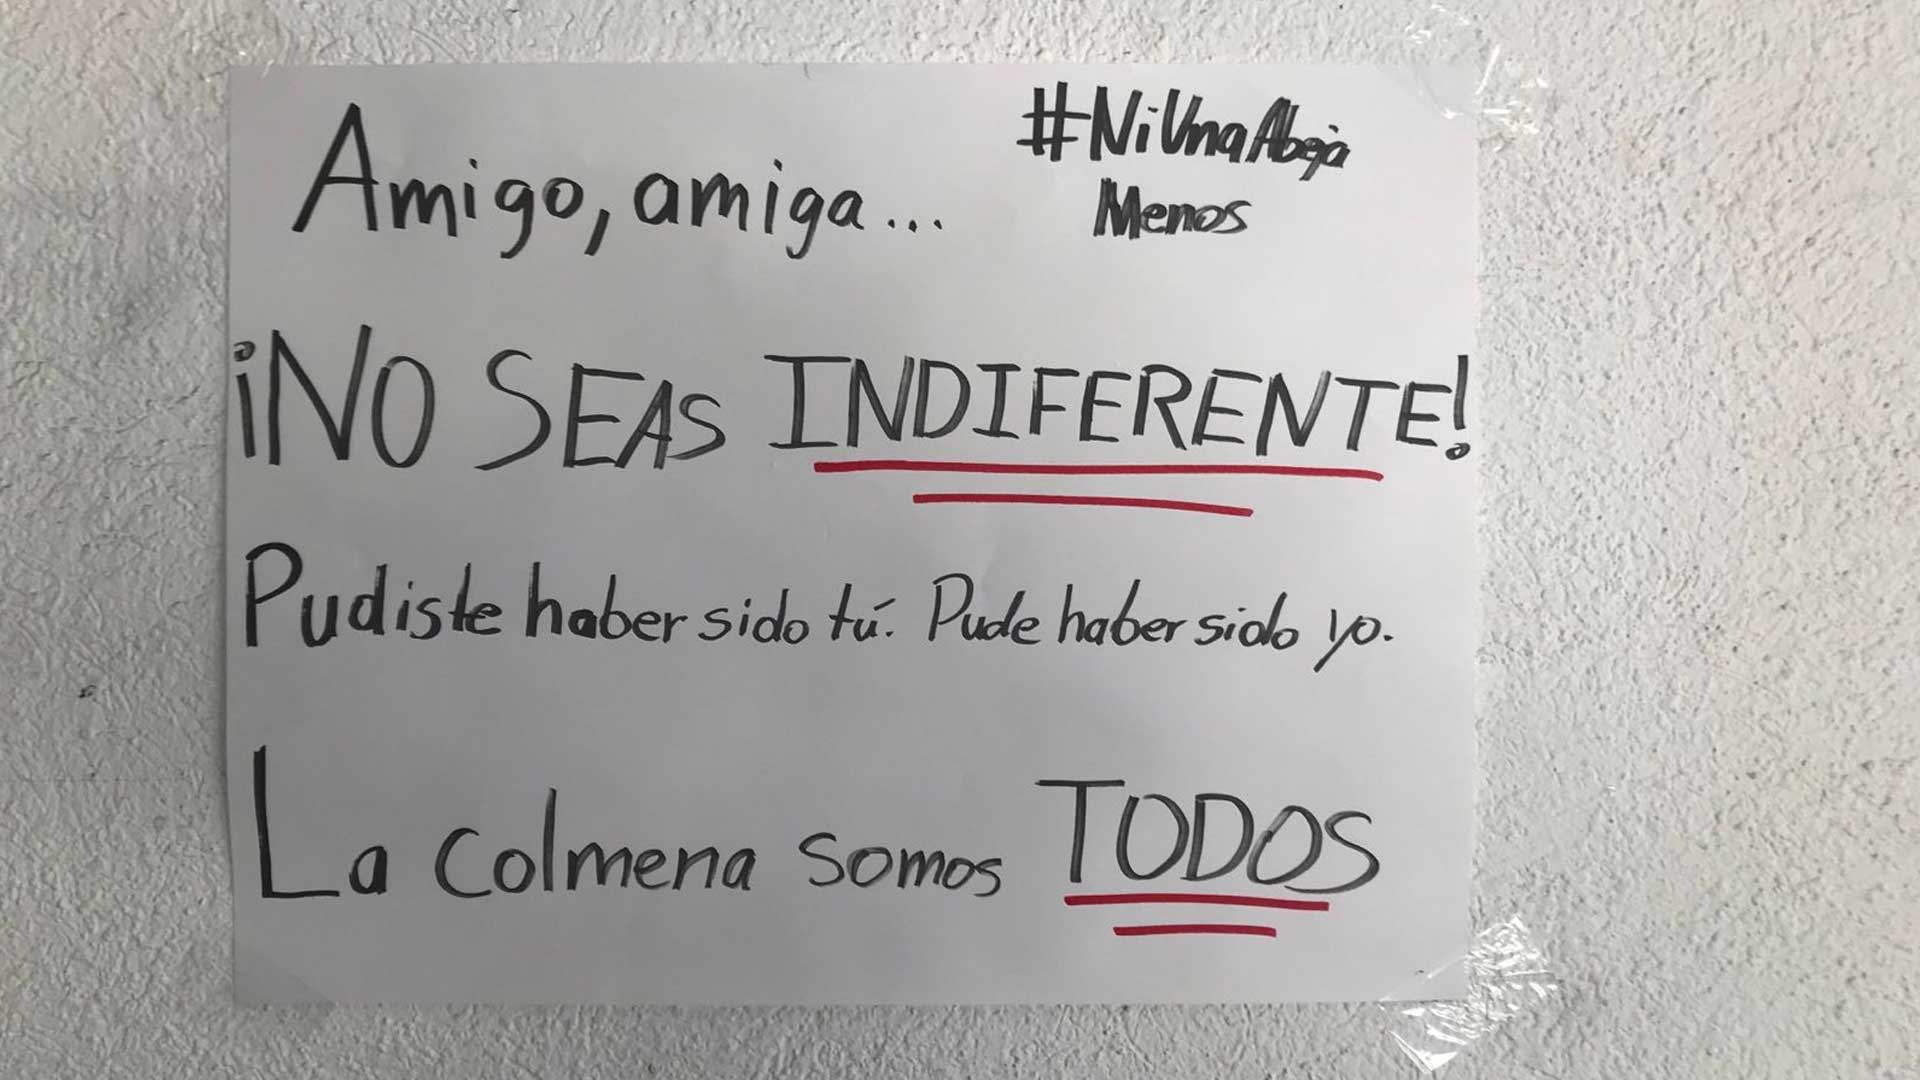 Amigo, amiga...
#NiUnaAbeja
Menos
¡NO SEAS INDIFERENTE!
Pudiste haber sido tú. Pude haber sido yo.
La colmena somos TODOS